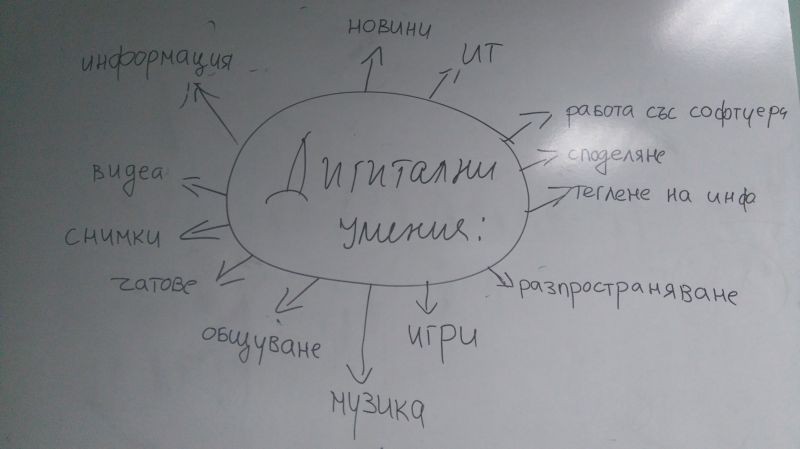 новини
ИТ
информация
работа със софтуера
споделяне
теглене на инфа
видеа
снимки
чатове
Дигитални
умения:
разпространяване
общуване
игри
музика